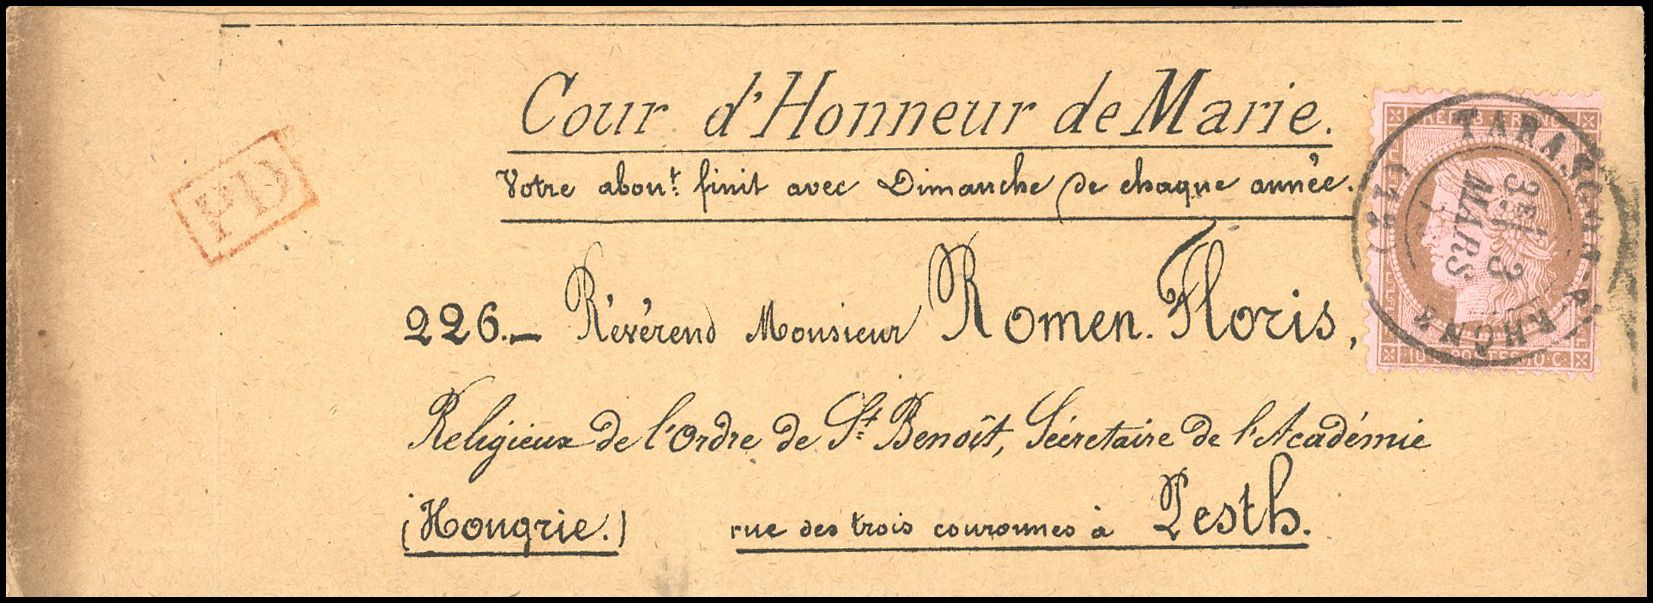 Cour d'Honneur de Marie.
Votre abont. finit avec Dimanche de chaque année.
PD
TARASCON-
(12)
3E/
3
MARS
226.— Révérend Monsieur Romen. Floris,
Religieux de l'Ordre de St. Benoît, Sécretaire de l'Académie
(Hongrie.) rue des trois couronnes à Pesth.